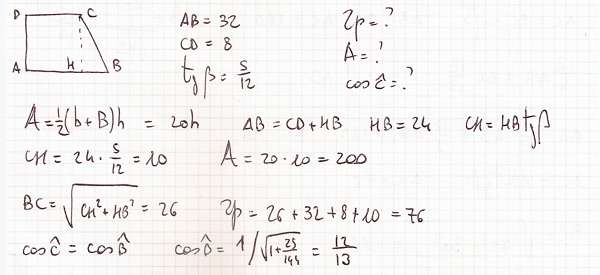 D C AB = 32 2p = ?
CD = 8 A = ?
A H B tg β = 5/12 cos Ĉ = ?
A = 1/2 (b + B) h = 20h AB = CD + HB HB = 24 CH = HB tg β
CH = 24 · 5/12 = 10 A = 20 · 10 = 200
BC = √(CH² + HB²) = 26 2p = 26 + 32 + 8 + 10 = 76
cos Ĉ = cos B̂ cos B̂ = 1/√(1 + 25/144) = 12/13